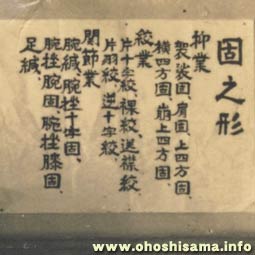 固之形
抑業
袈裟固、肩固、上四方固、
横四方固、崩上四方固、
絞業
片十字絞、裸絞、送襟絞、
片羽絞、逆十字絞、
関節業
腕緘、腕挫十字固、
腕挫腕固、腕挫膝固、
足緘、
www.ohoshisama.info